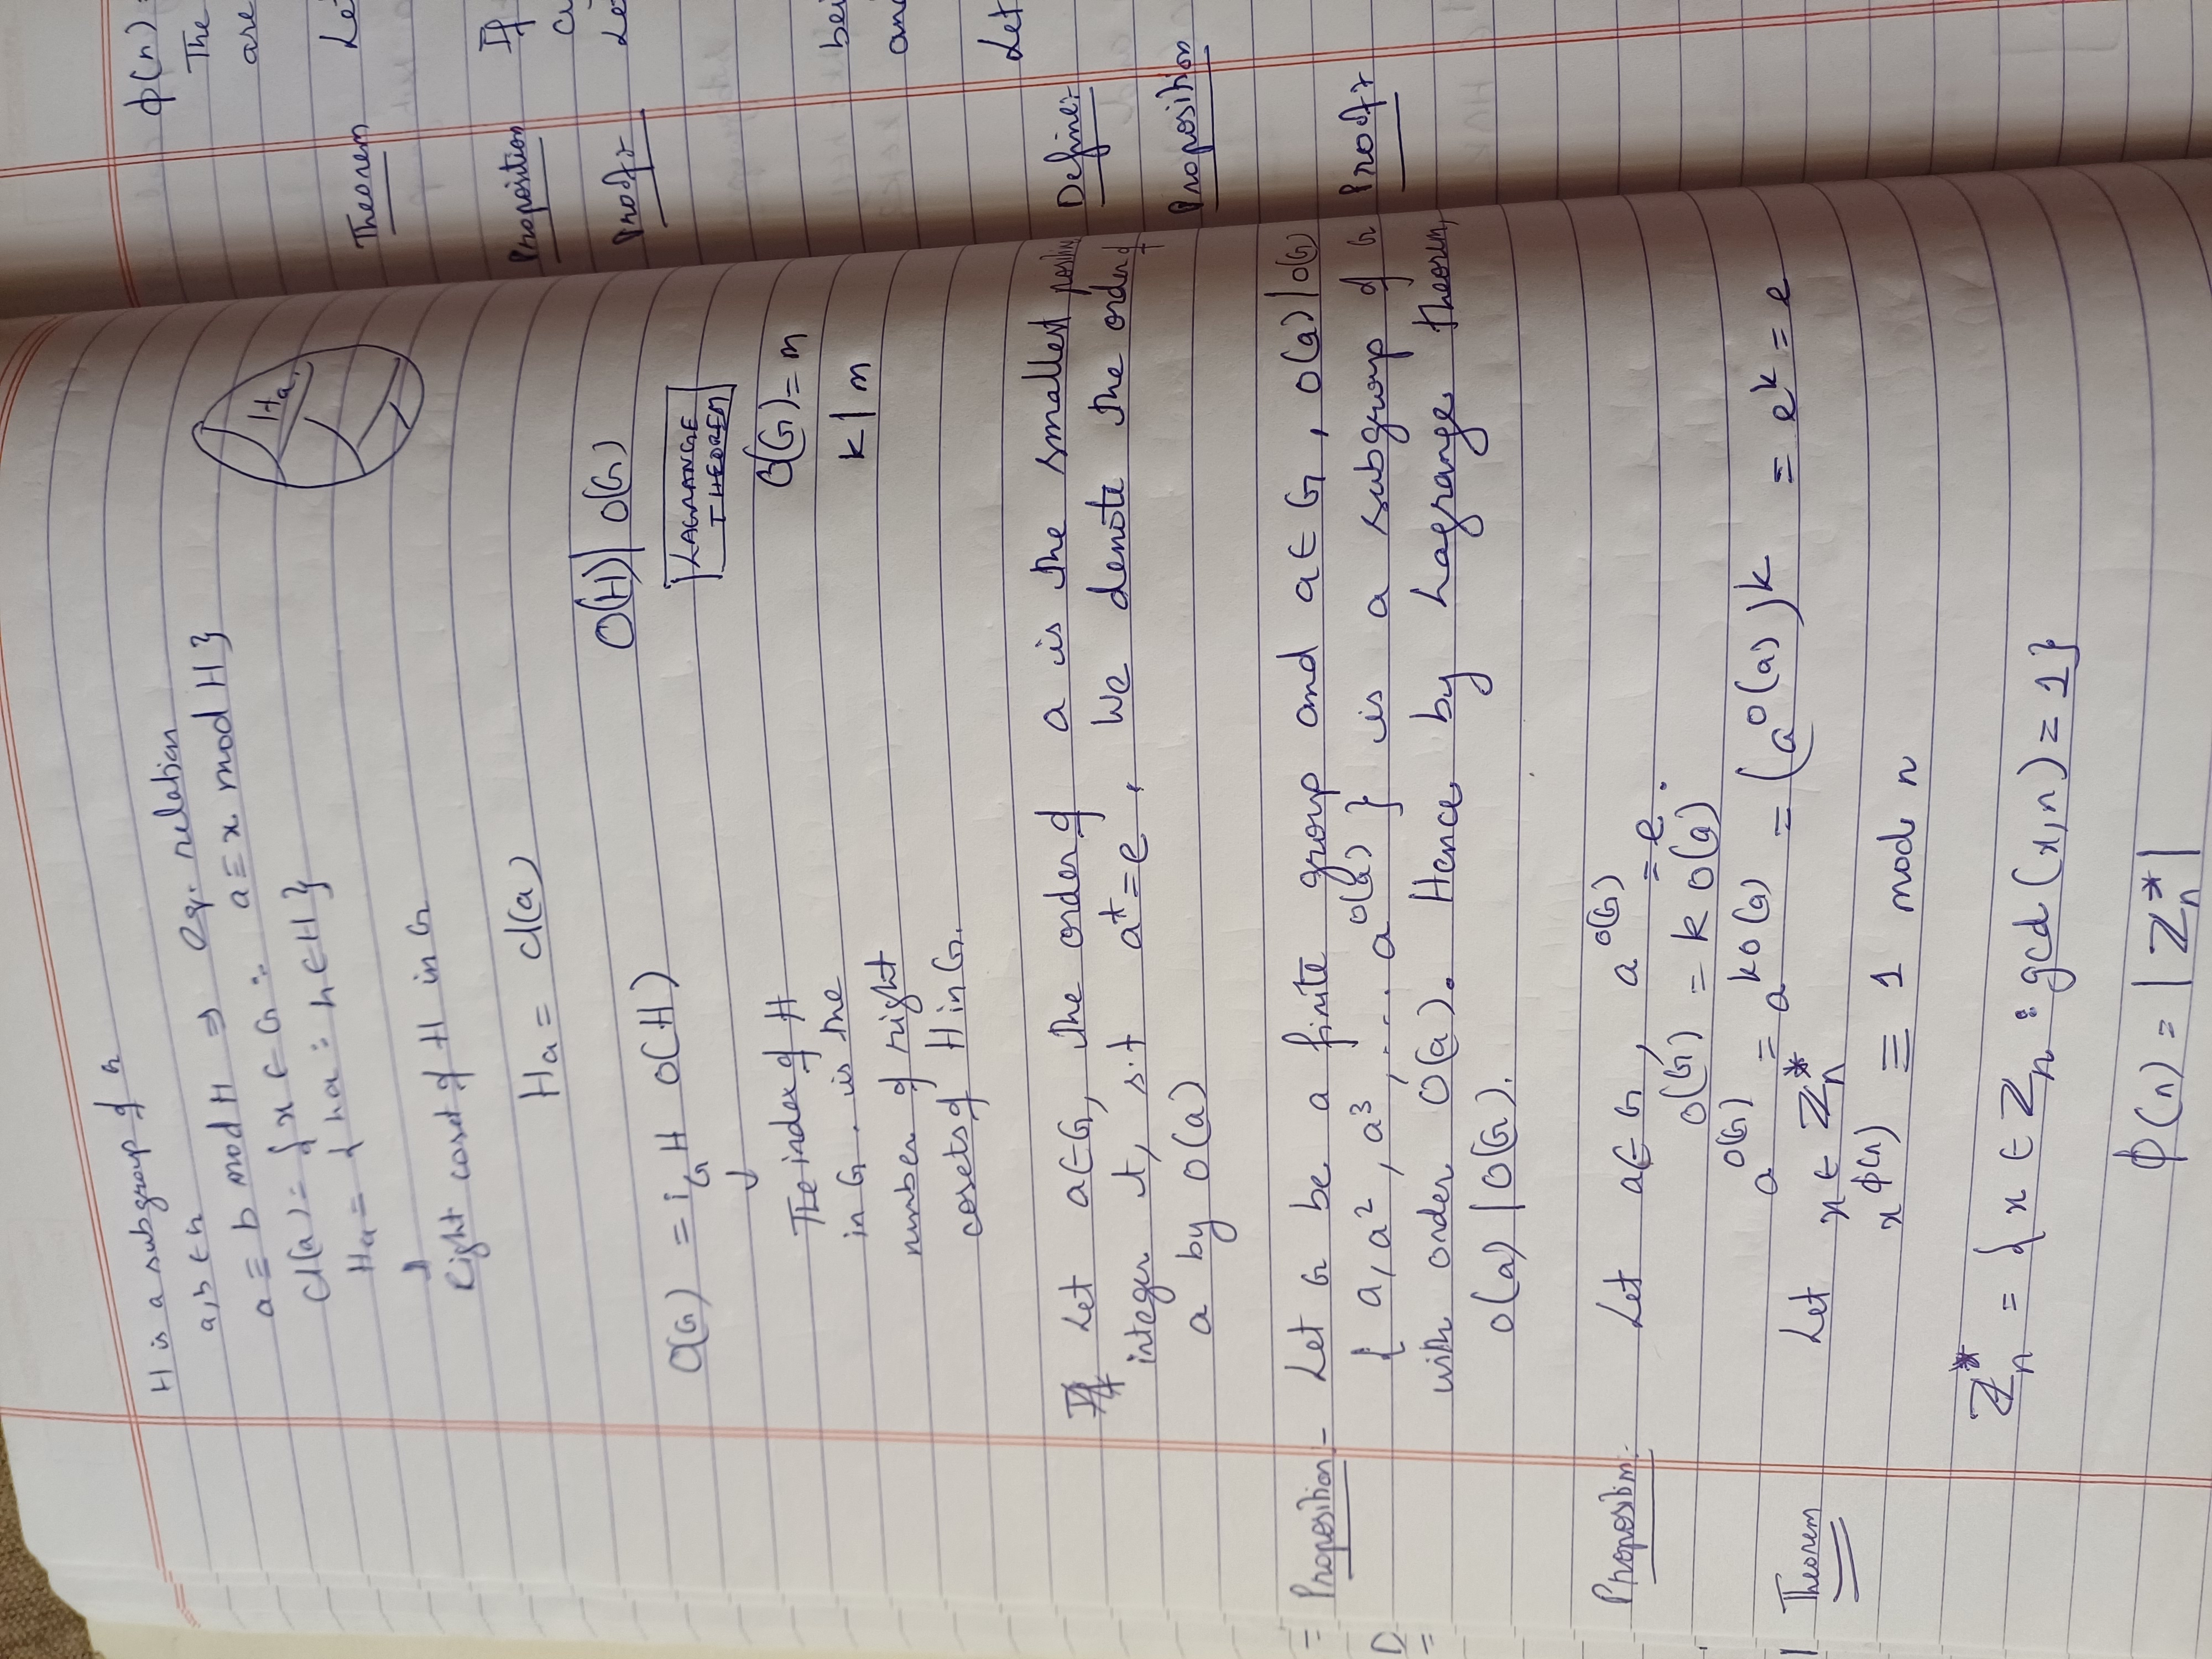 H is a subgroup of G
a, b ∈ G
a ≡ b mod H ⇒ eq. relation
cl(a) = { x ∈ G : a ≡ x mod H }
Ha = { ha : h ∈ H }
Ha
Right coset of H in G
Ha = cl(a)
O(H) | O(G)
O(G) = i_G H O(H)
LAGRANGE THEOREM
The index of H
in G. is the
number of right
cosets of H in G.
O(G) = m
k | m
Let a ∈ G, the order of a is the smallest positive
integer t, s.t a^t = e, we denote the order of
a by O(a)
Proposition:- Let G be a finite group and a ∈ G, O(a) | O(G)
{ a, a², a³, .... a^O(a) } is a subgroup of G
with order O(a). Hence by Lagrange theorem,
O(a) | O(G).
Proposition:- Let a ∈ G, a^O(G) = e.
O(G) = k O(a)
a^O(G) = a^kO(a) = (a^O(a))^k = e^k = e
Theorem Let x ∈ Z_n^*
x^ϕ(n) ≡ 1 mod n
Z_n^* = { x ∈ Z_n : gcd(x, n) = 1 }
ϕ(n) = | Z_n^* |
ϕ(n) =
The
are
Theorem Let
Proposition If
Proof:- Let
bei
and
Let
Define:-
Proposition
Proof:-